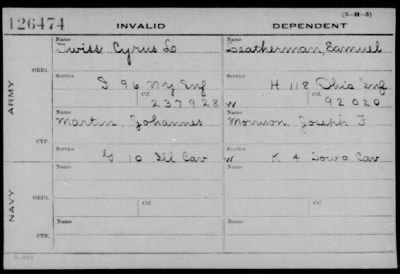 126474 INVALID DEPENDENT (3-M-3)
Name Name
Twiss Cyrus L Leatherman, Samuel
ORIG. Service Service
S 96 Ny Inf H 118 Ohio Inf
ARMY Ctf. Ctf.
237928 W 92020
Name Name
Martin, Johannes Morrison, Joseph F
CTF. Service Service
G 10 Ill Cav W K 4 Iowa Cav
Name Name
ORIG. Service Service
NAVY Ctf. Ctf.
Name Name
CTF. Service Service